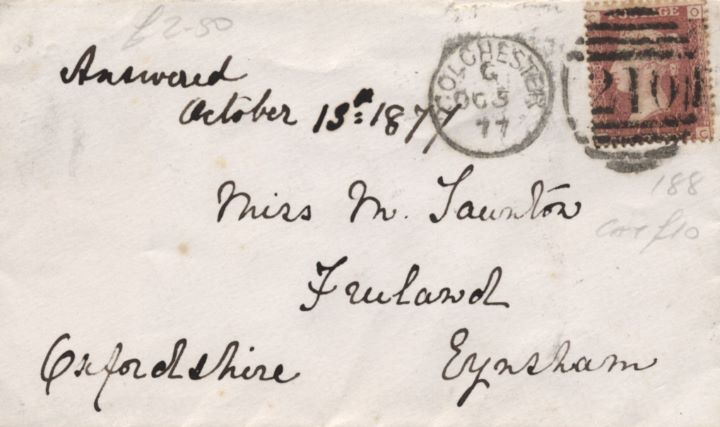 £2-50
Answered
October 13th 1877
COLCHESTER
G
OC 5
77
POSTAGE
210
188
CAT £10
Miss M. Taunton
Freeland
Oxfordshire Eynsham